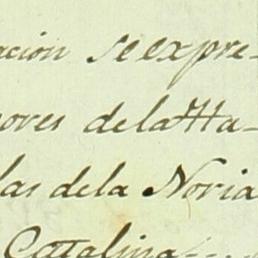 ación se expre-
ores dela Ha-
las dela Noria
Catalina